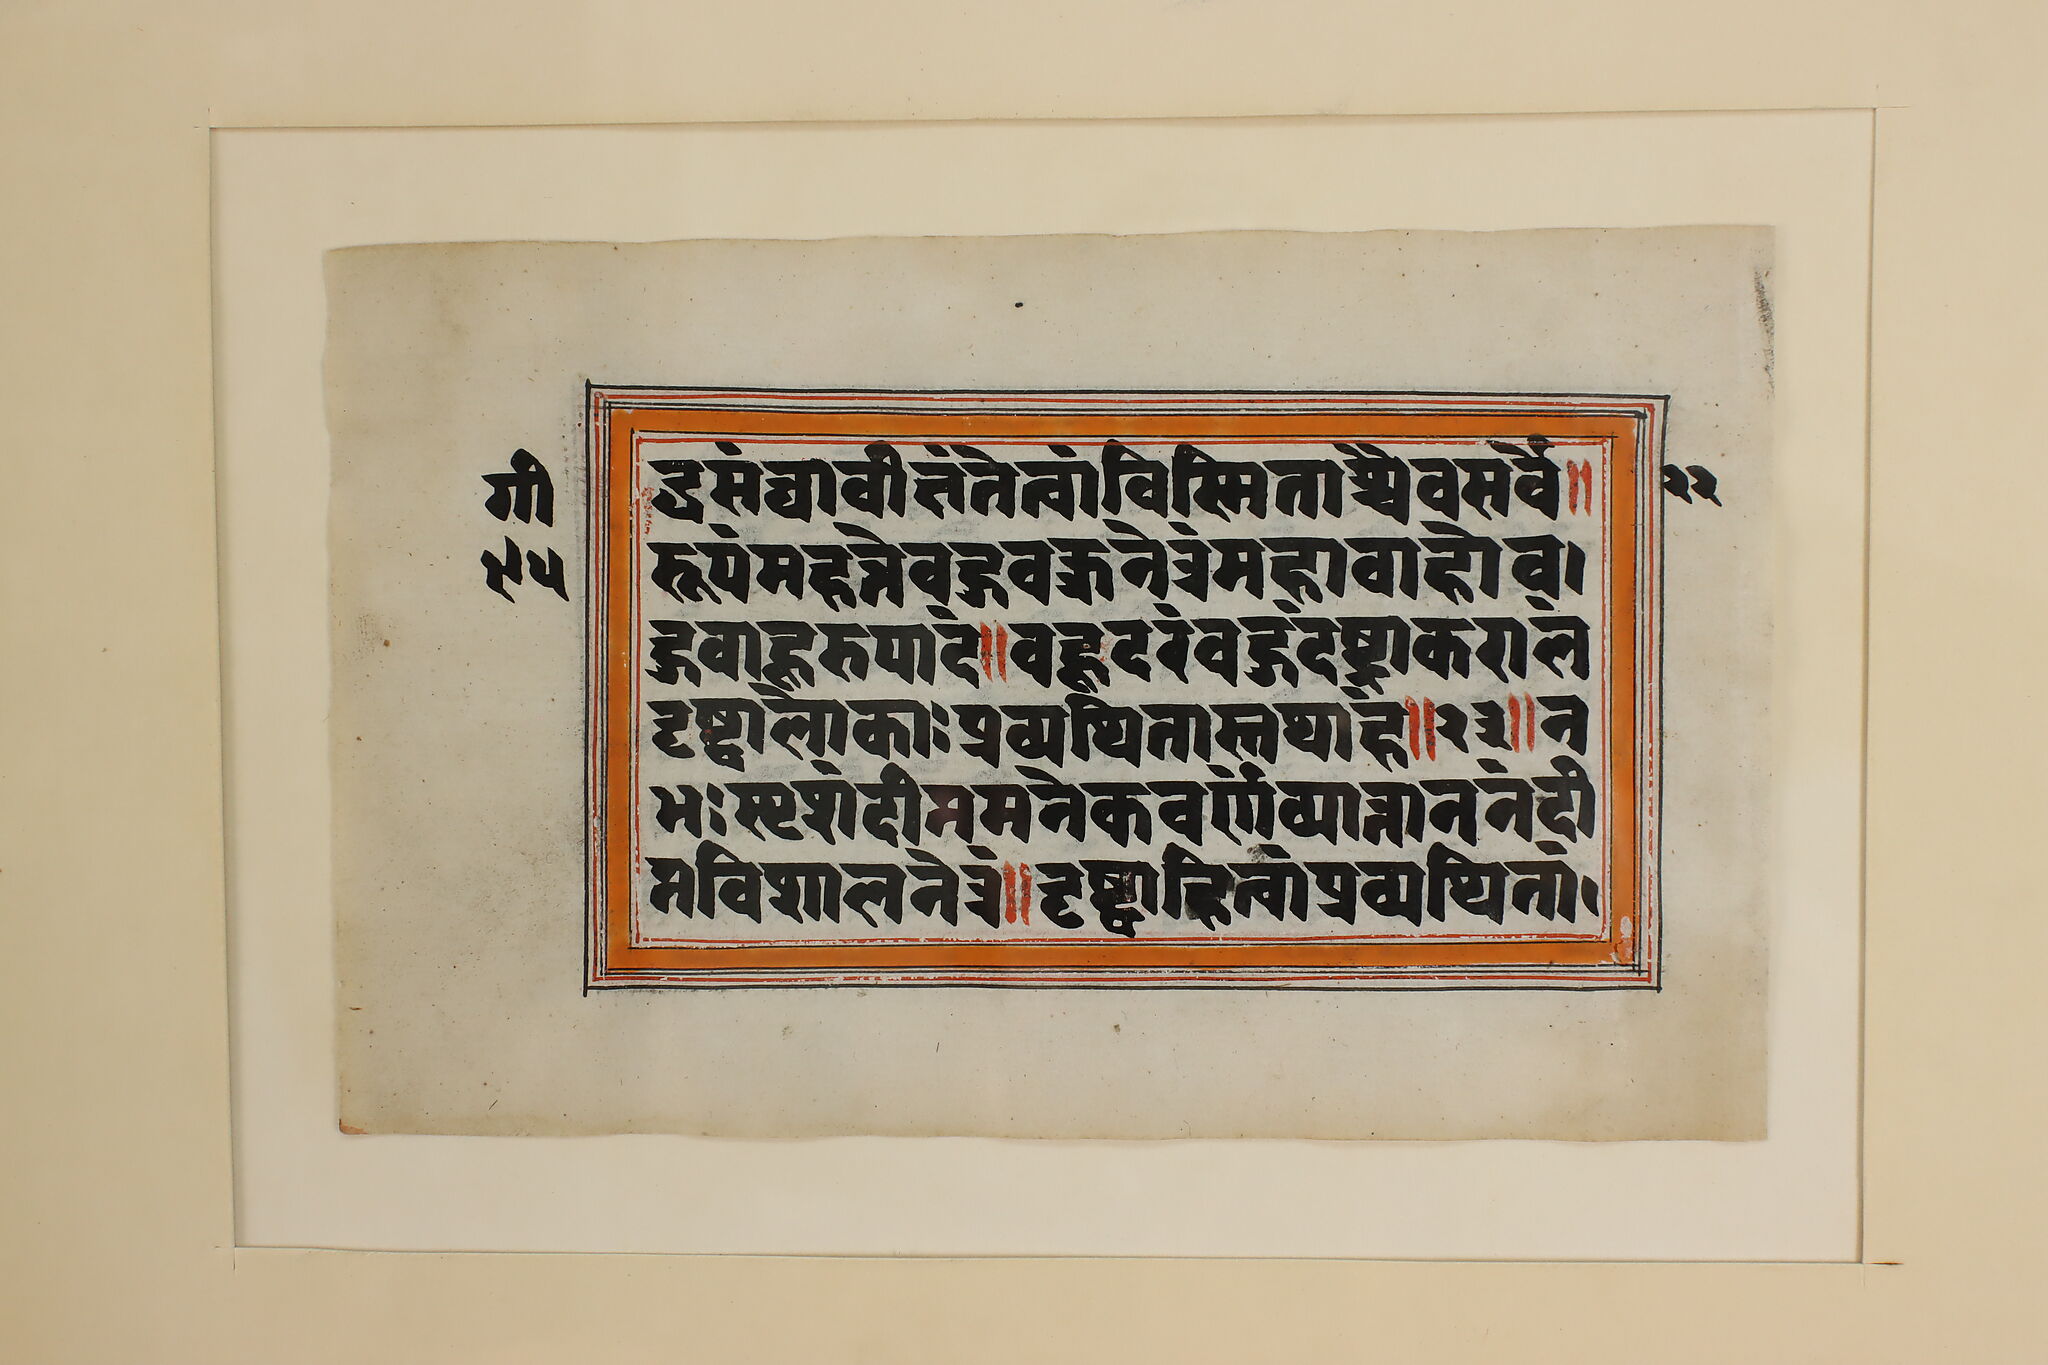 गी
९५
द्धसंघावीक्षंतेत्वांविस्मिताश्चैवसर्वे॥ २२
रूपंमहत्तेबहुवक्त्रनेत्रंमहाबाहोब।
हुबाहूरुपादं॥बहूदरंबहुदंष्ट्राकरालं
दृष्ट्वालोकाःप्रव्यथितास्तथाहं॥२३॥न
भःस्पृशंदीप्तमनेकवर्णंव्यात्ताननंदी
प्तविशालनेत्रं॥दृष्ट्वाहित्वांप्रव्यथितां।